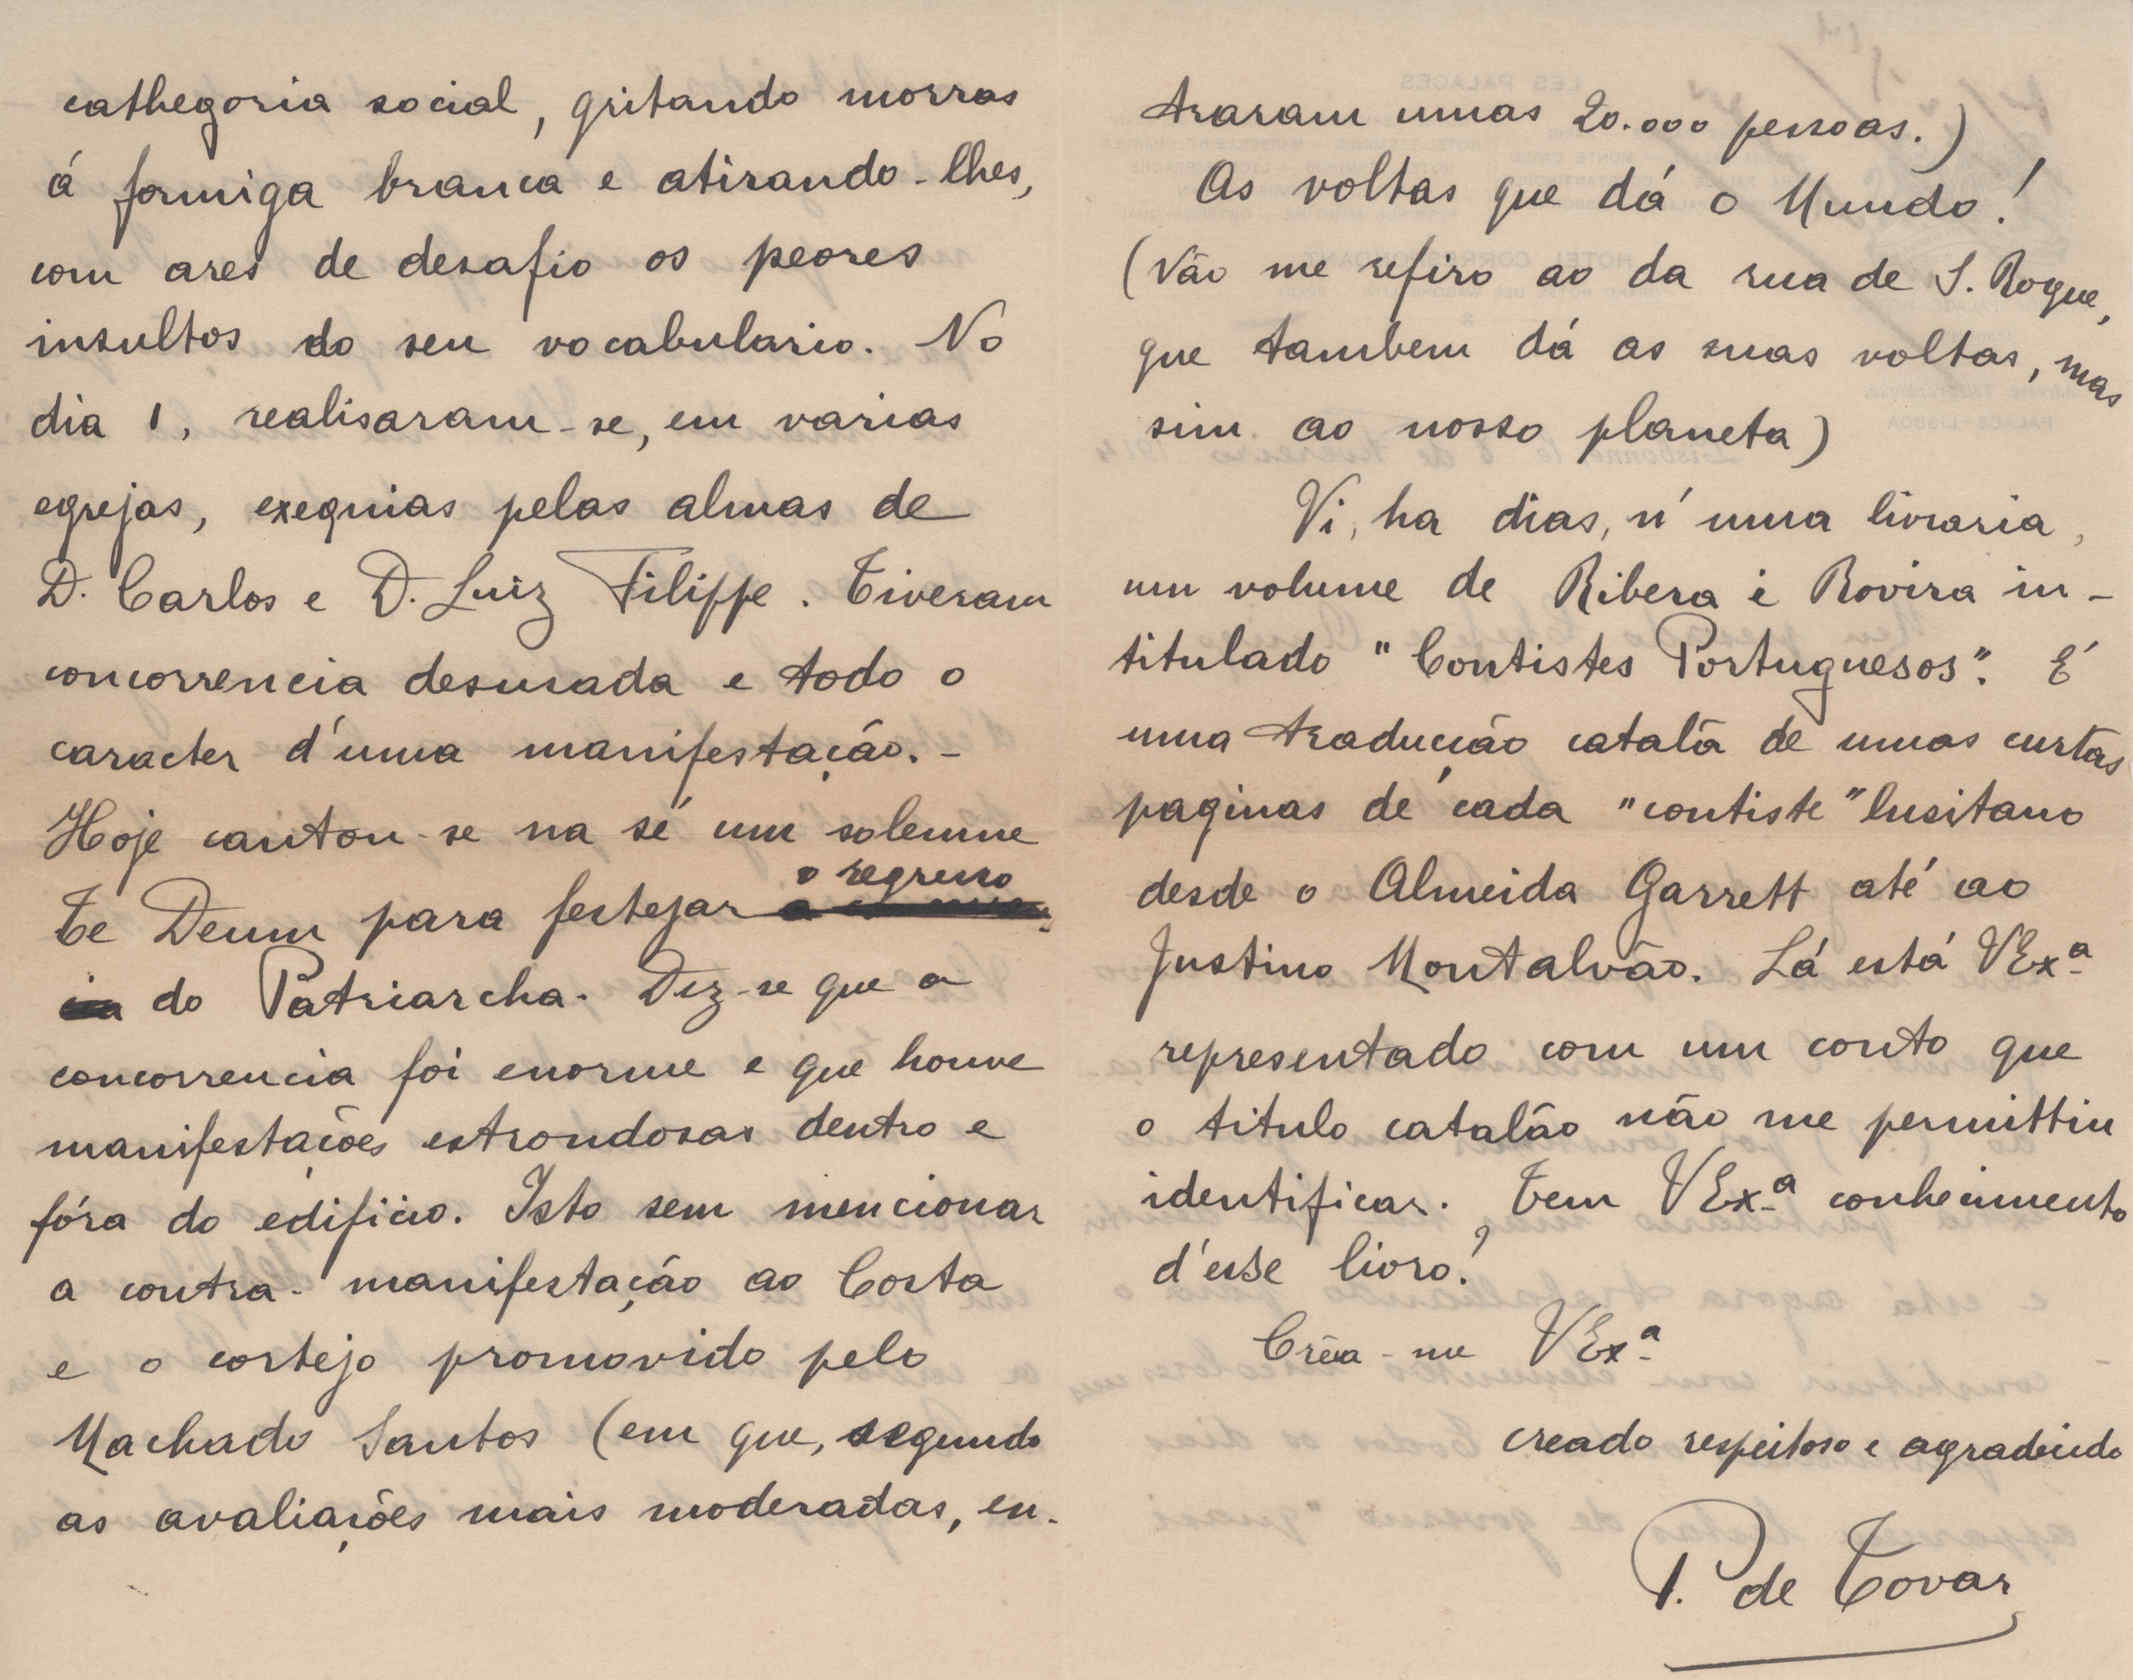 cathegoria social, gritando morras
á formiga branca e atirando-lhes,
com ares de desafio os peores
insultos do seu vocabulario. No
dia 1, realisaram-se, em varias
egrejas, exequias pelas almas de
D. Carlos e D. Luiz Filippe. Tiveram
concorrencia desusada e todo o
caracter d'uma manifestação.-
Hoje cantou-se na sé um solemne
o regresso
Te Deum para festejar
do Patriarcha. Diz-se que a
concorrencia foi enorme e que houve
manifestações estrondosas dentro e
fóra do edificio. Isto sem mencionar
a contra-manifestação ao Costa
e o cortejo promovido pelo
Machado Santos (em que, segundo
as avaliações mais moderadas, en-
traram umas 20.000 pessoas.)
As voltas que dá o Mundo!
(Não me refiro ao da rua de S. Roque,
que tambem dá as suas voltas, mas
sim ao nosso planeta)
Vi, ha dias, n'uma livraria,
um volume de Ribera i Rovira in-
titulado "Contistes Portuguesos". É
uma traducção catalã de umas curtas
paginas de cada "contiste" lusitano
desde o Almeida Garrett até ao
Justino Montalvão. Lá está VExª
representado com um conto que
o titulo catalão não me permittiu
identificar. Tem VExª conhecimento
d'esse livro?
Crêa-me VExª
creado respeitoso e agradecido
P. de Tovar